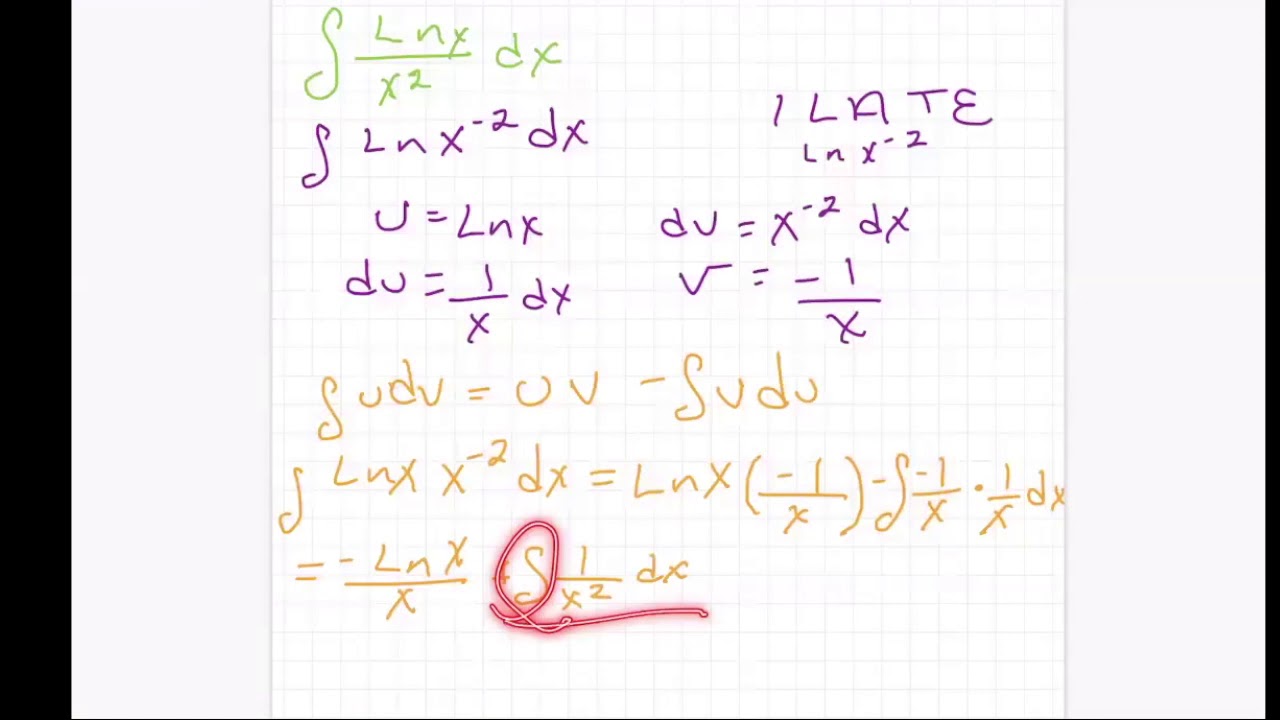 ∫ Lnx/x² dx
∫ Ln x⁻² dx
ILATE
Ln x⁻²
u = Lnx dv = x⁻² dx
du = 1/x dx v = -1/x
∫ u dv = u v - ∫ v du
∫ Lnx x⁻² dx = Lnx (-1/x) - ∫ -1/x · 1/x dx
= -Lnx/x + ∫ 1/x² dx